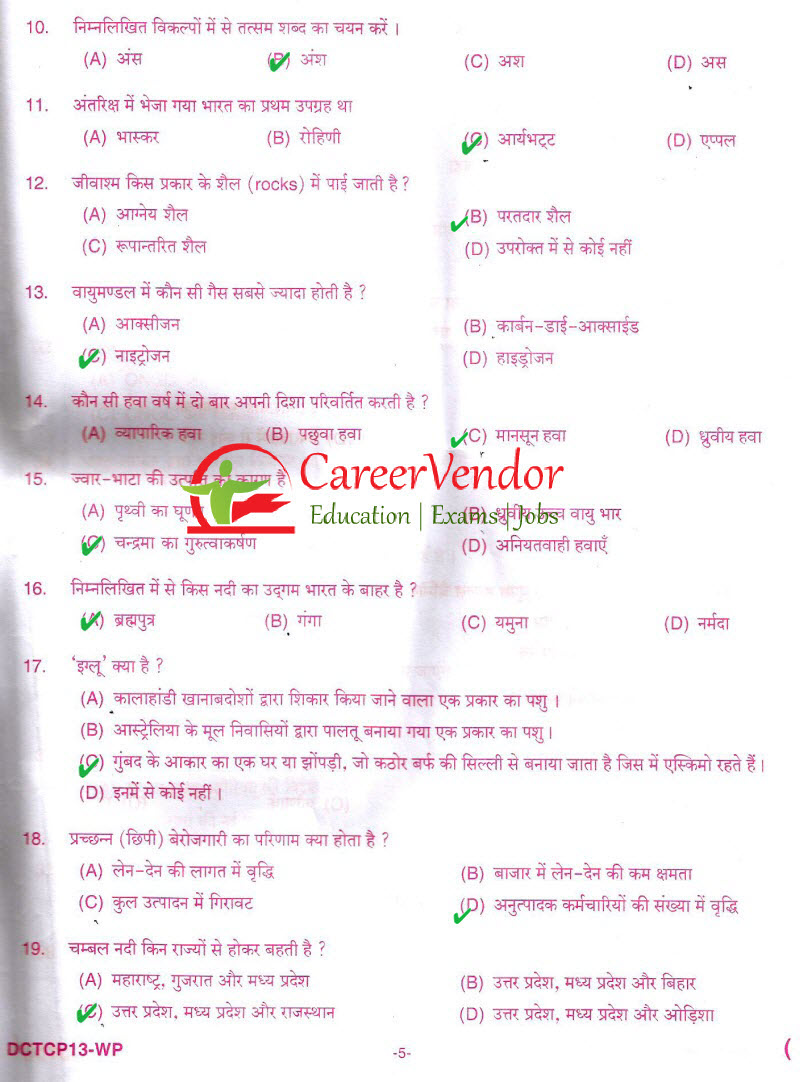 10. निम्नलिखित विकल्पों में से तत्सम शब्द का चयन करें ।
(A) अंस (B) अंश (C) अश (D) अस
11. अंतरिक्ष में भेजा गया भारत का प्रथम उपग्रह था
(A) भास्कर (B) रोहिणी (C) आर्यभट्ट (D) एप्पल
12. जीवाश्म किस प्रकार के शैल (rocks) में पाई जाती है ?
(A) आग्नेय शैल (B) परतदार शैल
(C) रूपान्तरित शैल (D) उपरोक्त में से कोई नहीं
13. वायुमण्डल में कौन सी गैस सबसे ज्यादा होती है ?
(A) आक्सीजन (B) कार्बन-डाई-आक्साईड
(C) नाइट्रोजन (D) हाइड्रोजन
14. कौन सी हवा वर्ष में दो बार अपनी दिशा परिवर्तित करती है ?
(A) व्यापारिक हवा (B) पछुवा हवा (C) मानसून हवा (D) ध्रुवीय हवा
CareerVendor
15. ज्वार-भाटा की का कारण है
(A) पृथ्वी का (B) ध्रुवीय उच्च वायु भार
Education | Exams | Jobs
(C) चन्द्रमा का गुरुत्वाकर्षण (D) अनियतवाही हवाएँ
16. निम्नलिखित में से किस नदी का उद्गम भारत के बाहर है ?
(A) ब्रह्मपुत्र (B) गंगा (C) यमुना (D) नर्मदा
17. 'इग्लू' क्या है ?
(A) कालाहांडी खानाबदोशों द्वारा शिकार किया जाने वाला एक प्रकार का पशु ।
(B) आस्ट्रेलिया के मूल निवासियों द्वारा पालतू बनाया गया एक प्रकार का पशु ।
(C) गुंबद के आकार का एक घर या झोंपड़ी, जो कठोर बर्फ की सिल्ली से बनाया जाता है जिस में एस्किमो रहते हैं ।
(D) इनमें से कोई नहीं ।
18. प्रच्छन्न (छिपी) बेरोजगारी का परिणाम क्या होता है ?
(A) लेन-देन की लागत में वृद्धि (B) बाजार में लेन-देन की कम क्षमता
(C) कुल उत्पादन में गिरावट (D) अनुत्पादक कर्मचारियों की संख्या में वृद्धि
19. चम्बल नदी किन राज्यों से होकर बहती है ?
(A) महाराष्ट्र, गुजरात और मध्य प्रदेश (B) उत्तर प्रदेश, मध्य प्रदेश और बिहार
(C) उत्तर प्रदेश, मध्य प्रदेश और राजस्थान (D) उत्तर प्रदेश, मध्य प्रदेश और ओड़िशा
DCTCP13-WP -5- (